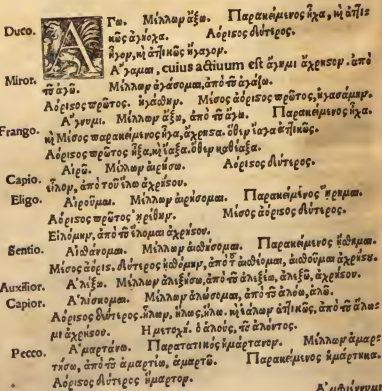 Duco. ΑΓω. Μέλλων ἄξω. Παρακείμενος ἦχα, κὶ ἀττικῶς ἀγήοχα. Ἀόριστος δεύτερος.
ἦγον, κὶ ἀττικῶς ἤγαγον.
Miror. Ἄγαμαι, cuius actiuum est ἄγημι ἄχρηστον. ἀπὸ
τοῦ ἀγῶ. Μέλλων ἀγάσομαι, ἀπὸ τοῦ ἀγάζω.
Ἀόριστος πρῶτος. ἠγάσθην. Μέσος ἀόριστος πρῶτος, ἠγασάμην.
Frango. Ἄγνυμι. Μέλλων ἄξω, ἀπὸ τοῦ ἄγω. Παρακείμενος ἦχα.
κὶ Μέσος παρακείμενος ἦγα, ἄχρηστα. ὅθεν ἔαγα ἀττικῶς.
Ἀόριστος πρῶτος ἦξα, κὶ ἔαξα. ὅθεν κατέαξα.
Capio. Αἱρῶ. Μέλλων αἱρήσω. Ἀόριστος δεύτερος.
εἷλον, ἀπὸ τοῦ ἕλω ἀχρήστου.
Eligo. Αἱροῦμαι. Μέλλων αἱρήσομαι. Παρακείμενος ᾕρημαι.
Ἀόριστος πρῶτος ᾑρέθην. Μέσος ἀόριστος δεύτερος.
Εἱλόμην, ἀπὸ τοῦ ἕλομαι ἀχρήστου.
Sentio. Αἰσθάνομαι. Μέλλων αἰσθήσομαι. Παρακείμενος ᾔσθημαι.
Μέσος ἀόριστ. δεύτερος ᾐσθόμην, ἀπὸ τοῦ αἰσθέομαι, αἰσθοῦμαι ἀχρήστου.
Auxilior. Ἀλέξω. Μέλλων ἀλεξήσω, ἀπὸ τοῦ ἀλεξέω, ἀλεξῶ, ἀχρήστου.
Capior. Ἁλίσκομαι. Μέλλων ἁλώσομαι, ἀπὸ τοῦ ἁλόω, ἁλῶ.
Ἀόριστος δεύτερος. ἥλων, ἥλως, ἥλω. κὶ ἑάλων ἀττικῶς, ἀπὸ τοῦ ἅλωμι ἀχρήστου. Ἡ μετοχὴ. ὁ ἁλοὺς, τοῦ ἁλόντος.
Pecco. Ἁμαρτάνω. Παρατατικὸς ἡμάρτανον. Μέλλων ἁμαρτήσω, ἀπὸ τοῦ ἁμαρτέω, ἁμαρτῶ. Παρακείμενος ἡμάρτηκα.
Ἀόριστος δεύτερος ἥμαρτον.